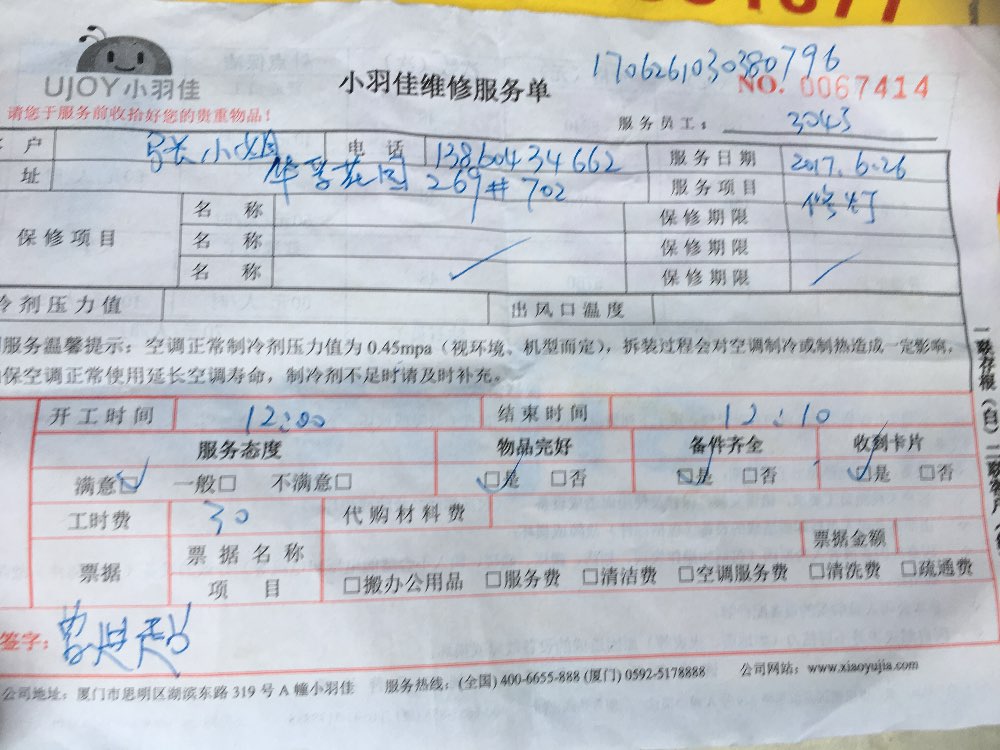 UJOY小羽佳
小羽佳维修服务单
1706261030380796
NO. 0067414
请您于服务前收拾好您的贵重物品!
服务员工: 3043
户 小姐 电话 13860434662 服务日期 2017.6.26
址 花园 269#702 服务项目 修灯
保修项目 名称 保修期限
名称 保修期限
名称 保修期限
冷剂压力值 出风口温度
服务温馨提示: 空调正常制冷剂压力值为0.45mpa (视环境、机型而定), 拆装过程会对空调制冷或制热造成一定影响,
保空调正常使用延长空调寿命, 制冷剂不足时请及时补充。
开工时间 12:00 结束时间 12:10
服务态度 物品完好 备件齐全 收到卡片
满意☑ 一般□ 不满意□ ☑是 □否 ☑是 □否 ☑是 □否
工时费 30 代购材料费
票据 票据名称 票据金额
项目 □搬办公用品 □服务费 □清洁费 □空调服务费 □清洗费 □疏通费
签字:
公司地址: 厦门市思明区湖滨东路319号A幢小羽佳 服务热线: (全国) 400-6655-888 (厦门) 0592-5178888 公司网站: www.xiaoyujia.com
一联存根(白) 二联客户